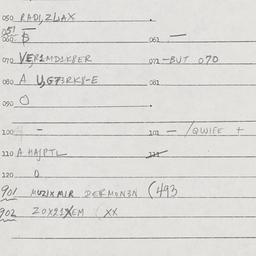 050 RADI,ZLAX .
051 —
060 $ 061 —
070 VER1MD1KBER 071 -BUT 070
080 A U,G73RK8-E 081
090 O .
100 - 101 - /QWIFE +
110 A HAJPTL 111
120 0
901 MUZIXMIR DERMON3N (493
902 ZOX21XEM (XX